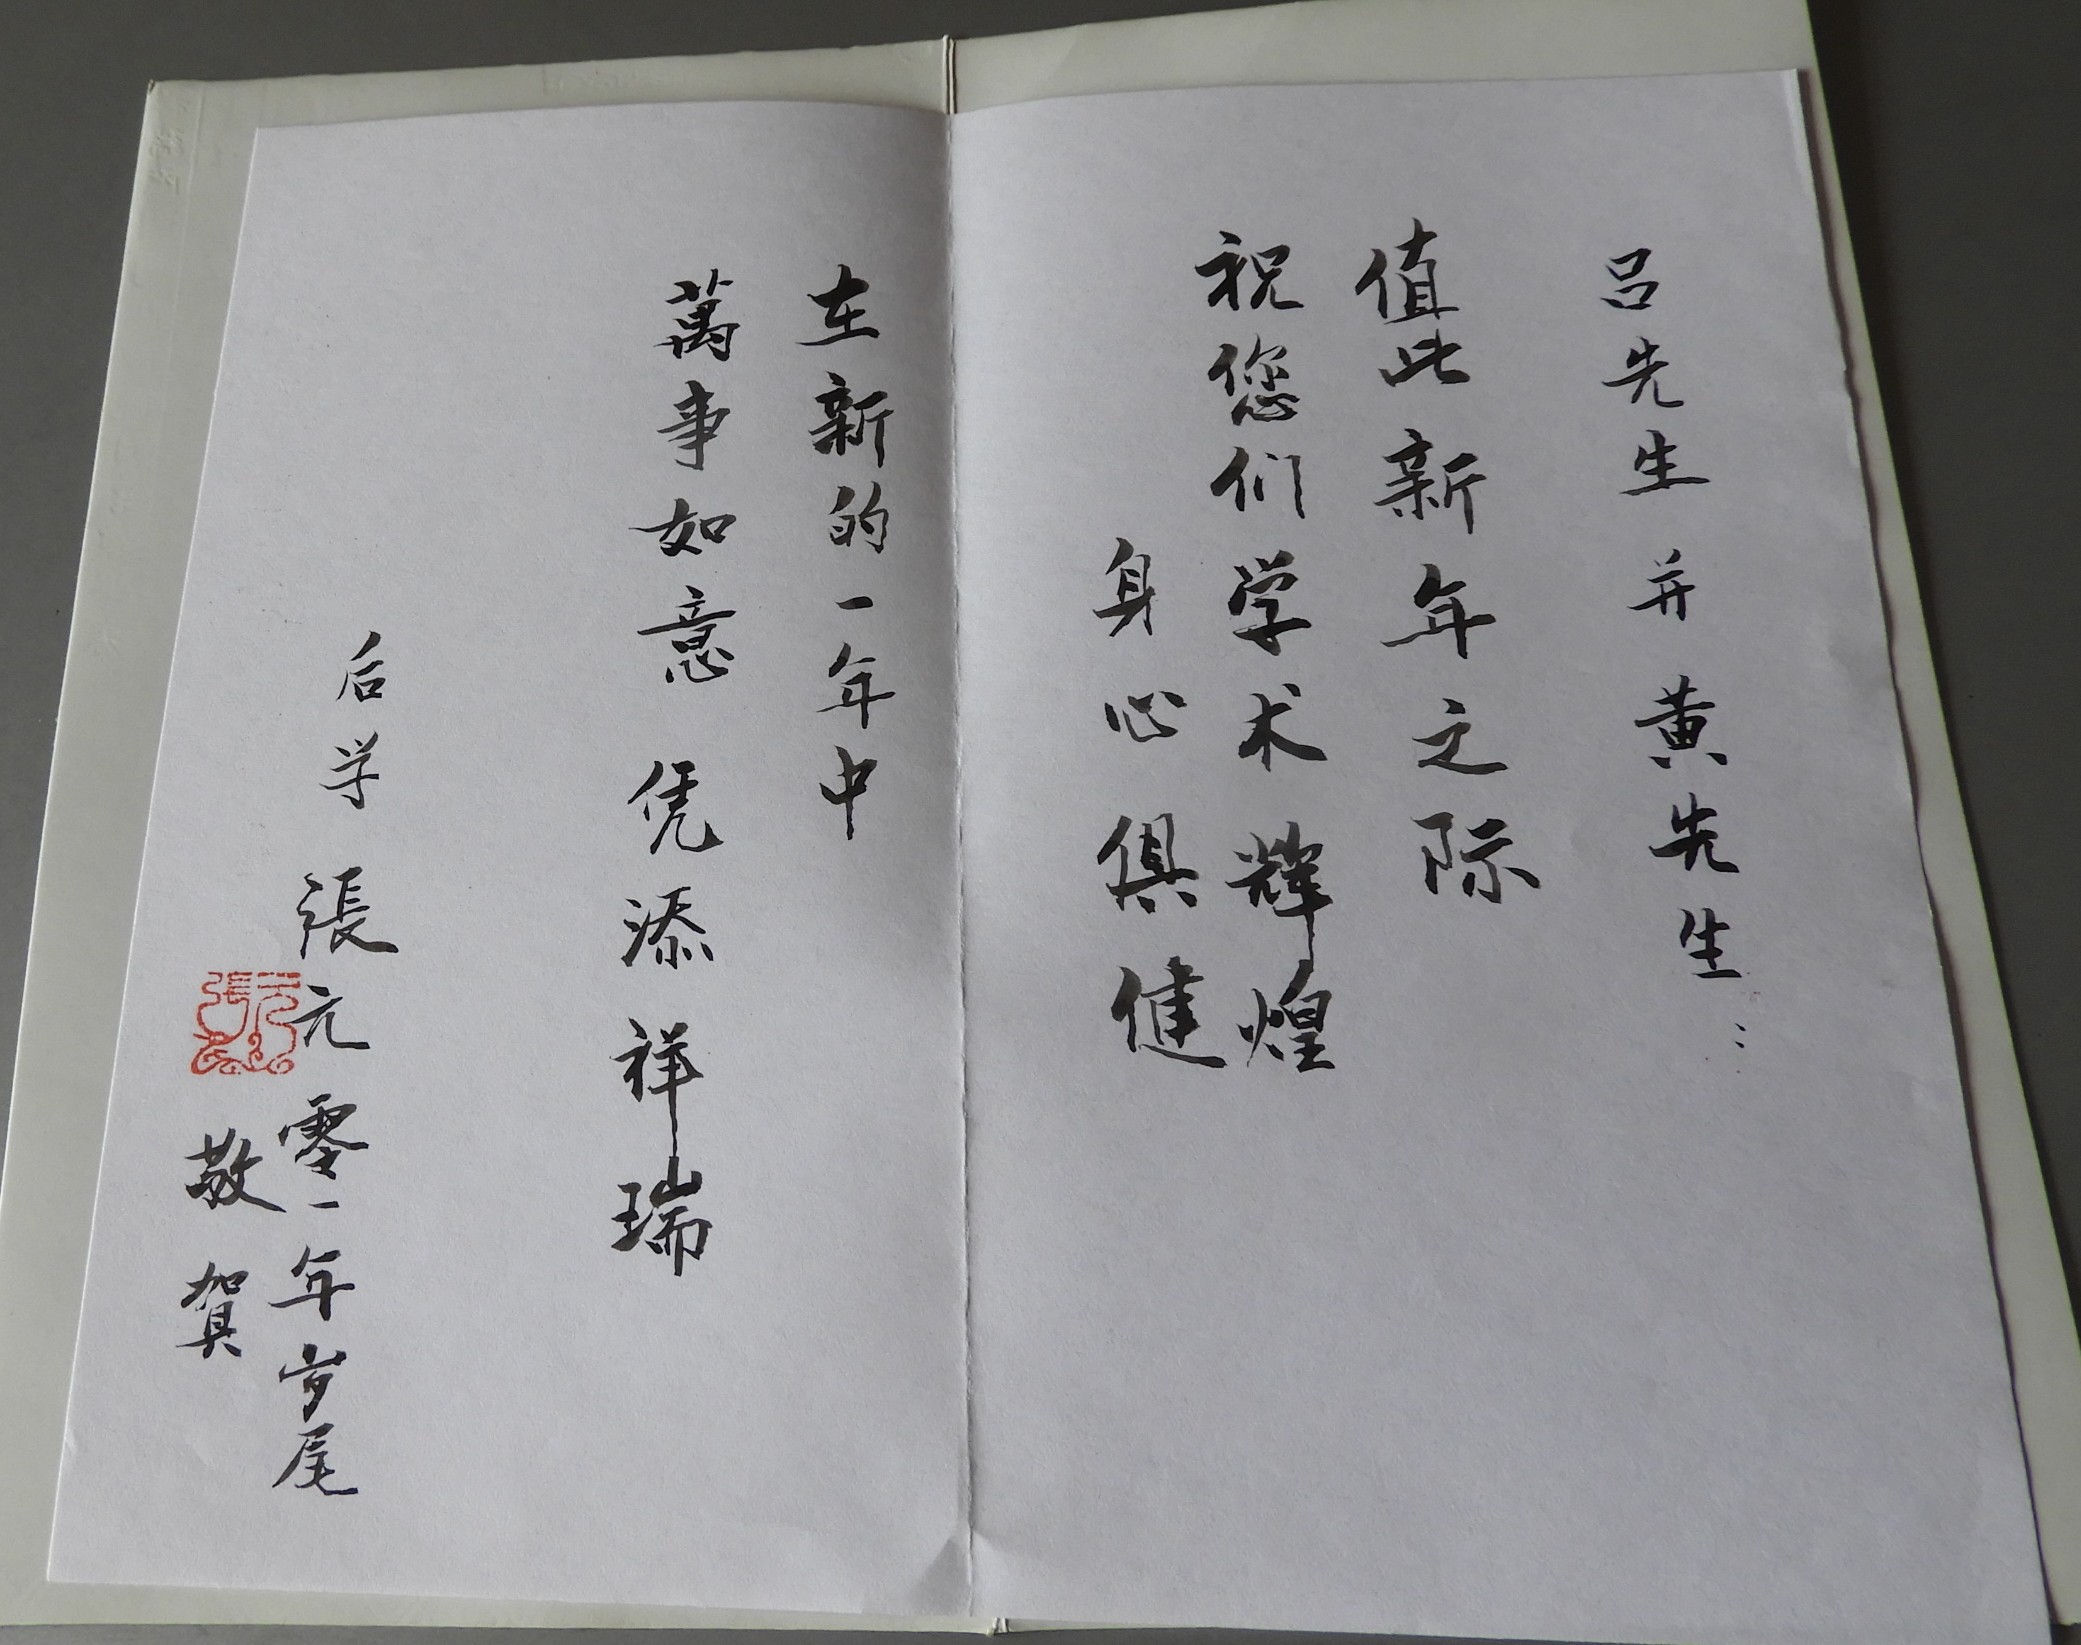 吕先生并黄先生：
值此新年之际
祝您们学术辉煌
身心俱健
在新的一年中
萬事如意 凭添祥瑞
后学 張元
零一年岁尾
敬贺
張元